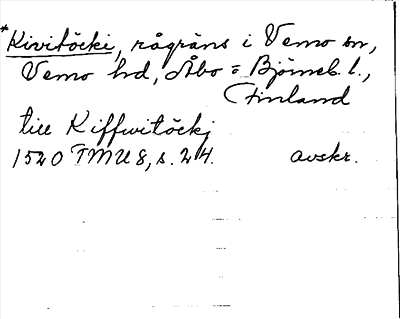 *Kivitöcki, rågräns i Vemo sn,
Vemo hd, Åbo = Björneb. l.,
Finland
till Kiffwitöckj
1520 TMU 8, s. 24. avskr.